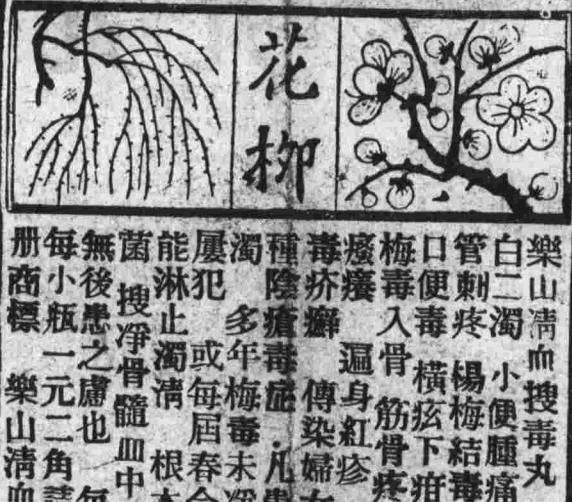 花柳
樂山清血搜毒丸
白二濁 小便腫痛
管刺疼 楊梅結毒
口便毒 橫痃下疳
梅毒入骨 筋骨疼
癈癢 遍身紅疹
毒疥癬 傳染婦女
種陰瘡毒症 凡患
濁 多年梅毒未淨
屢犯 或每屆春令
能淋止濁清 根本
菌 搜淨骨髓血中
無後患之慮也 每
每小瓶一元二角 請
册商標 樂山清血